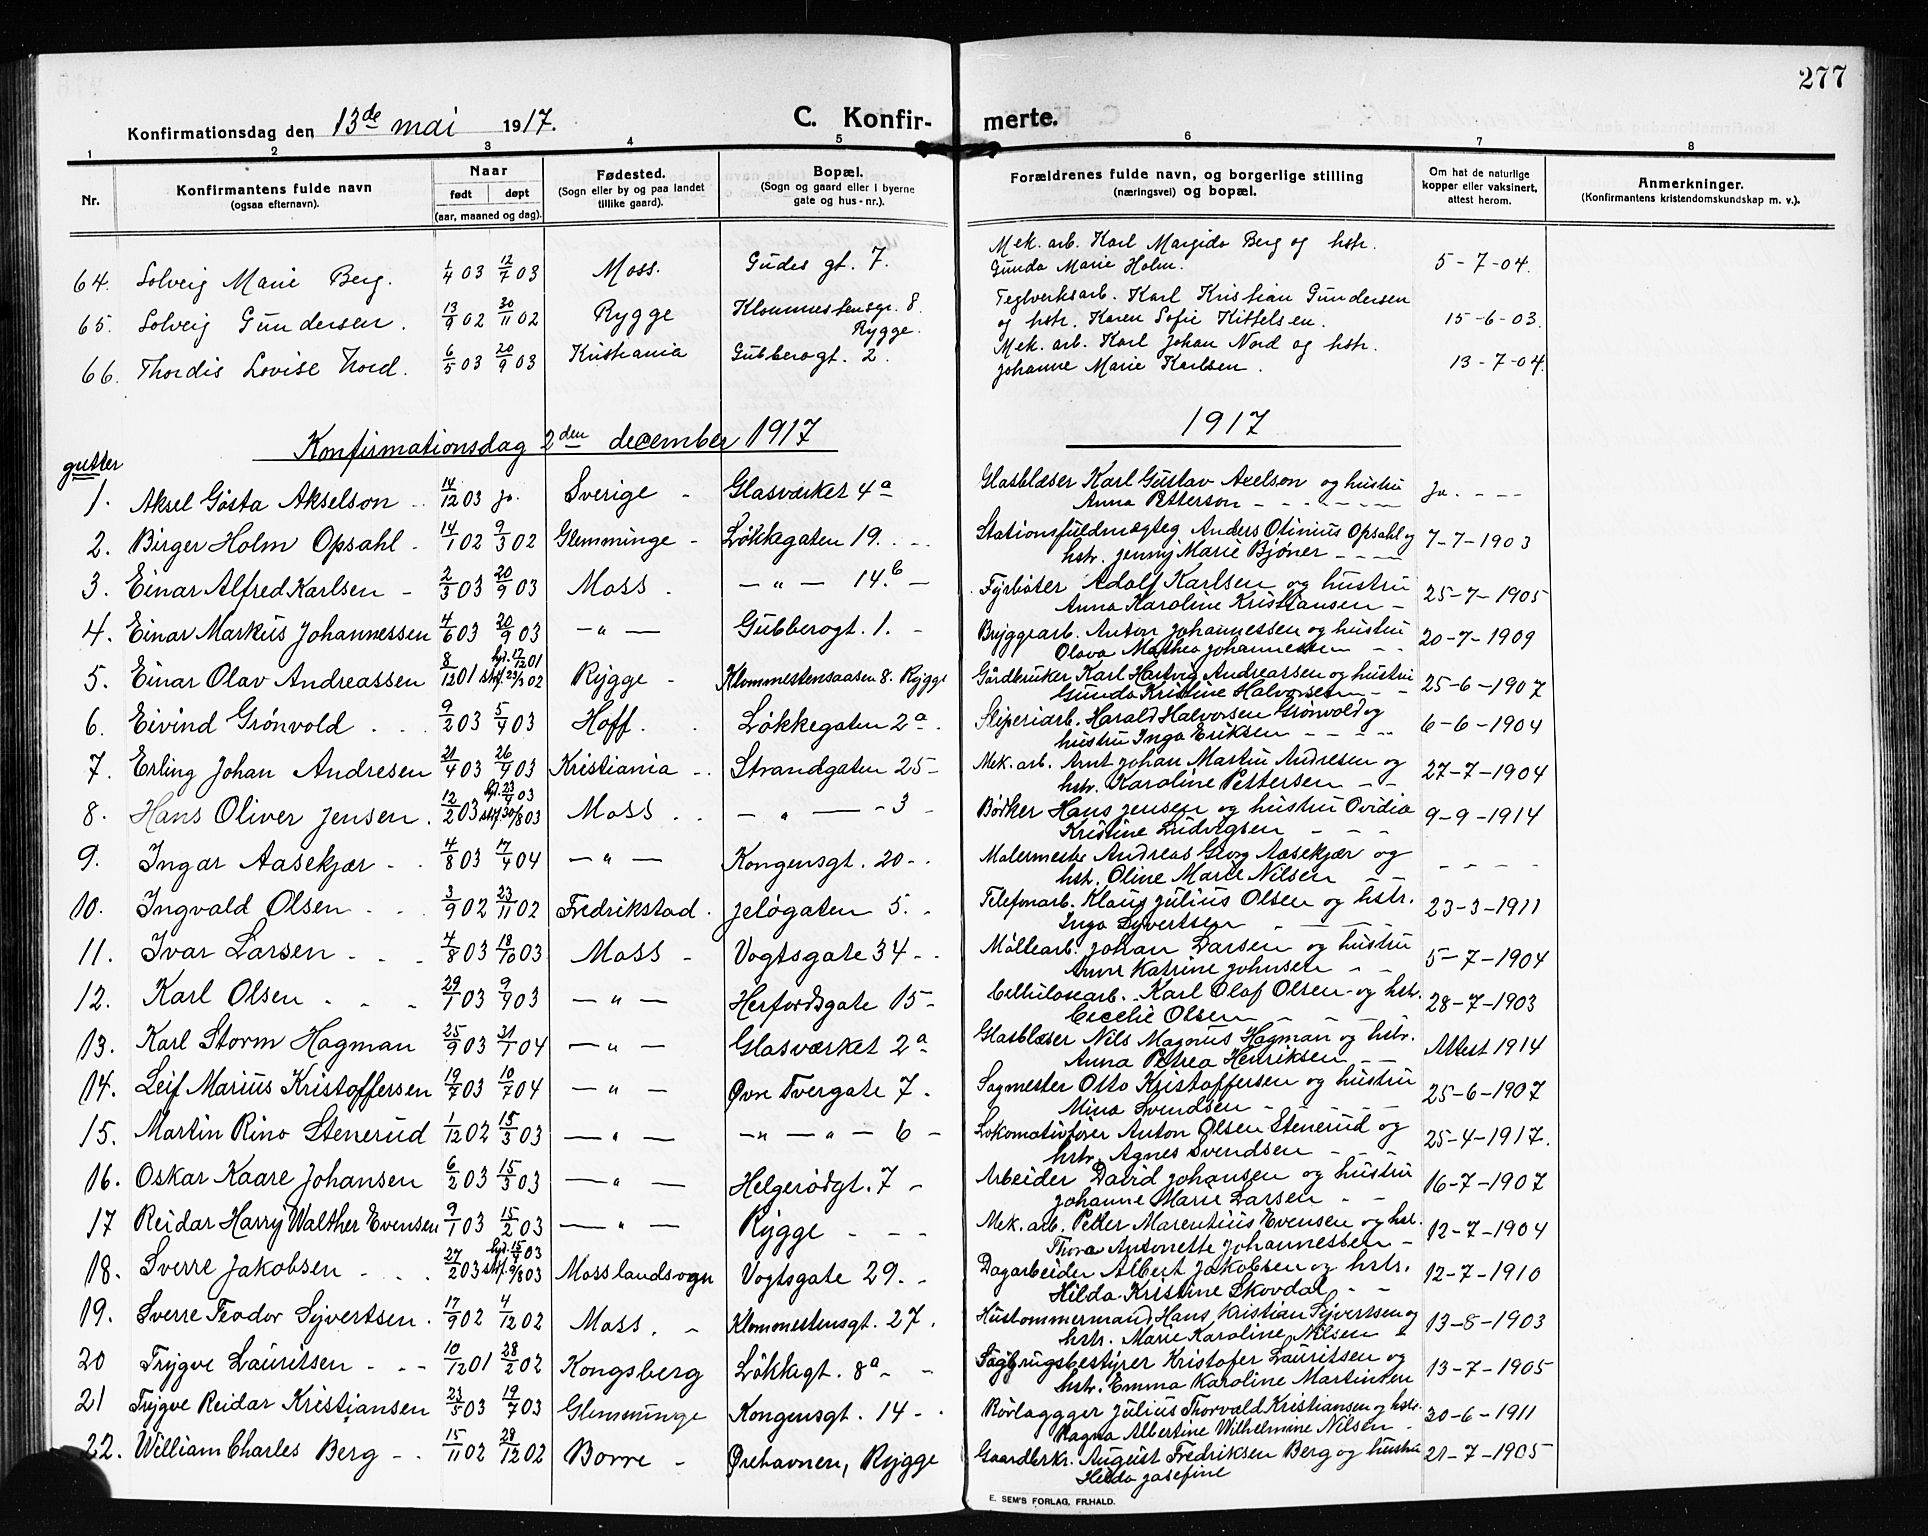 277
Konfirmationsdag den 13de mai 1917. C. Konfir- merte.
1 2 3 4 5 6 7 8
Nr. Konfirmantens fulde navn (ogsaa efternavn). Naar født døpt (aar, maaned og dag). Fødested. (Sogn eller by og paa landet tillike gaard). Bopæl. (Sogn og gaard eller i byerne gate og hus-nr.). Forældrenes fulde navn, og borgerlige stilling (næringsvei) og bopæl. Om hat de naturlige kopper eller vaksinert, attest herom. Anmerkninger. (Konfirmantens kristendomskundskap m. v.).
64. Solveig Marie Berg. 1/4 03 12/7 03 Moss. Gudes gt. 7. Mek. arb. Karl Margido Berg og hstr. 5-7-04.
Gunda Marie Holm.
65. Solveig Gundersen. 13/9 02 30/11 02 Rygge Klommestensgr. 8. Teglverksarb. Karl Kristian Gundersen 15-6-03.
Rygge. og hstr. Karen Sofie Kittelsen.
66. Thordis Lovise Nord. 6/5 03 20/9 03 Kristiania Gubberogt. 2. Mek. arb. Karl Johan Nord og hstr. 13-7-04.
Johanne Marie Karlsen.
Konfirmationsdag 2den december 1917 1917
gutter
1. Aksel Gösta Akselson 14/12 03 ja. Sverige - Glasværket 4a Glasblæser Karl Gustav Axelson og hustru Ja. - - -
Anna Petterson - - - - -
2. Birger Holm Opsahl - 14/1 02 9/3 02 Glemminge - Løkkegaten 19. - - Stationsfuldmægtig Anders Otinius Opsahl og 7-7-1903
hstr. Jenny Marie Bjøner - - - -
3. Einar Alfred Karlsen - 2/3 03 20/9 03 Moss - - " - 14.b - Fyrbøter Adolf Karlsen og hustru 25-7-1905
Anna Karoline Kristiansen -
4. Einar Markus Johannessen 4/6 03 20/9 03 - " - Gubberogt. 1. - Bryggearb. Anton Johannessen og hustru 20-7-1909
Olava Mathea Johannessen - -
5. Einar Olav Andreassen 8/12 01 hjd. 17/12 01 stf. 23/3 02 Rygge - Klommestensaasen 8. Rygge Gårdbruker Karl Hartvig Andreassen og hustru 25-6-1907
Gunda Kristine Halvorsen - -
6. Eivind Grønvold . . . 9/2 03 5/4 03 Hoff. . Løkkegaten 2a. . Sliperiarb. Harald Halvorsen Grønvold og 6-6-1904
hustru Inga Eriksen - - - -
7. Erling Johan Andresen 21/4 03 26/4 03 Kristiania - . Strandgaten 25- Mek. arb. Arnt Johan Martin Andresen og 27-7-1904
hstr. Karoline Pettersen - -
8. Hans Oliver Jensen . 12/2 03 hjd. 23/4 03 stf. 30/8 03 Moss . . - " - - 3 - Bødker Hans Jensen og hustru Ovidia 9-9-1914
Kristine Ludvigsen - - -
9. Ingar Aasekjær - . 4/8 03 17/4 04 - " - Kongensgt. 20 - . Malermester Andreas Georg Aasekjær og - - - -
hstr. Oline Marie Nilsen - -
10. Ingvald Olsen . . . 3/9 02 23/11 02 Fredrikstad . Jeløgaten 5. - Telefonarb. Klaus Julius Olsen og hstr. 23-3-1911
Inga Syvertsen - - - -
11. Ivar Larsen - . . 4/8 03 18/10 03 Moss - Vogtsgate 34 - - Møllearb. Johan Larsen og hustru 5-7-1904
Anne Katrine Johnsen - -
12. Karl Olsen . . . 29/1 03 9/9 03 - " - Herfordsgate 15 - Cellulosearb. Karl Olaf Olsen og hstr. 28-7-1903
Cecelie Olsen - - - .
13. Karl Storm Hagman 25/9 03 31/1 04 - " - Glasværket 2a Glasblæser Nils Magnus Hagman og hstr. Attest 1914
Anna Petrea Henriksen - -
14. Leif Marius Kristoffersen 19/7 03 10/7 04 - " - Øvre Tvergate 7. Sagmester Otto Kristoffersen og hustru 25-6-1907
Mina Svendsen - - -
15. Martin Rino Stenerud 1/12 02 15/3 03 - " - - " - " - 6 - Lokomotivfører Anton Olsen Stenerud og 25-4-1917.
hstr. Agnes Svendsen - - -
16. Oskar Kaare Johansen 6/2 03 15/3 03 - " - Helgerødgt. 7 - Arbeider David Johansen og hustru 16-7-1907
Johanne Marie Larsen - -
17 Reidar Harry Walther Evensen 9/1 03 15/2 03 - " - Rygge - - - Mek. arb. Petter Marentius Evensen og hstr. 12-7-1904
Thora Antonette Johannessen -
18. Sverre Jakobsen - . . 27/2 03 hjd. 15/4 03 stf. 9/8 03 Moss landsogn Vogtsgate 29. - Dagarbeider Albert Jakobsen og hstr. 12-7-1910
Hilda Kristine Skovdal - -
19. Sverre Teodor Syvertsen. 17/9 02 4/12 02 Moss. - Klommestensgt. 27. Hustømmermand Hans Kristian Syvertsen og 13-8-1903
hstr. Marie Karoline Nilsen -
20 Trygve Lauritsen - - - 10/12 01 28/2 02 Kongsberg Løkkegt. 8a - - Sagbrugsbestyrer Kristofer Lauritsen og 13-7-1905
hstr. Emma Karoline Martinsen
21 Trygve Reidar Kristiansen 23/5 03 19/7 03 Glemminge Kongensgt. 14 - . Rørlaggger Julius Thorvald Kristiansen og hstr. 30-6-1911
Magna Albertine Wilhelmine Nilsen -
22. William Charles Berg - . 15/11 02 28/12 02 Borre - Ørehavnen, Rygge Gaardbrkr. August Fredriksen Berg og hustru 21-7-1905
Hilda Josefine
E. SEM'S FORLAG, FR.HALD.